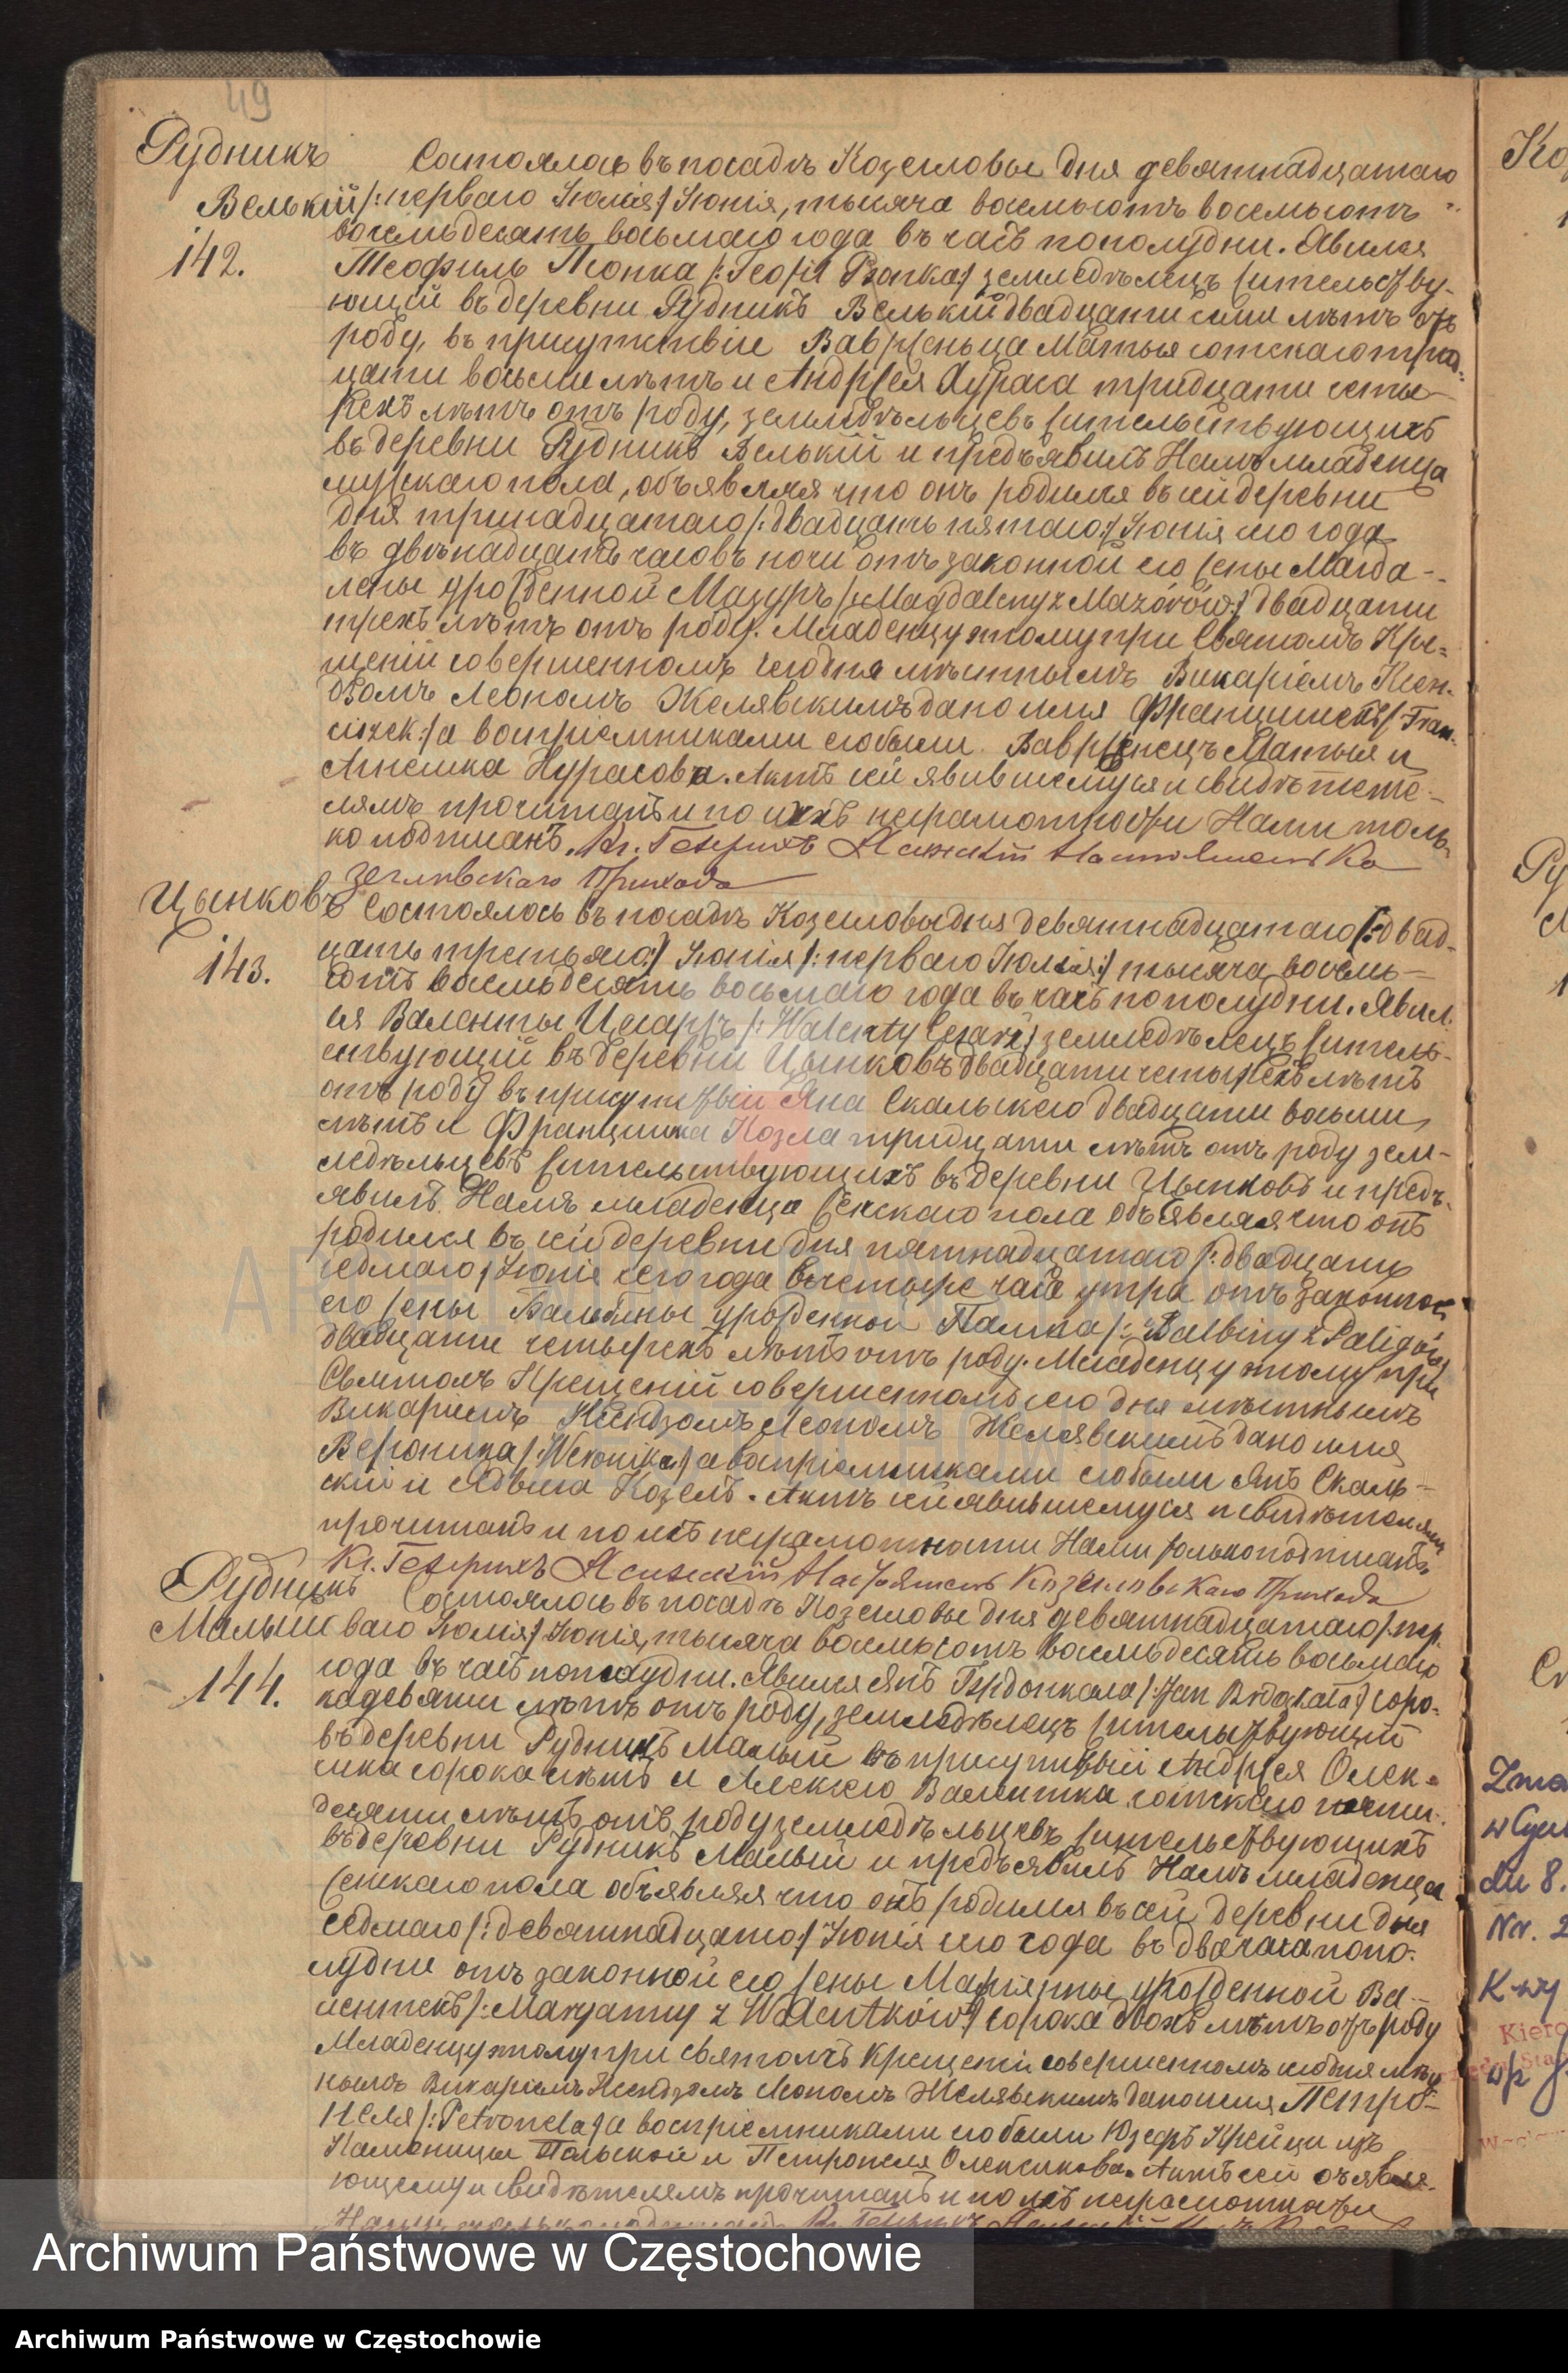 49
Рудникъ
Велькій
142.
Состоялось въ посадѣ Козегловы дня девятнадцатаго
/:перваго Іюля:/ Іюня, тысяча восемьсотъ восемьсотъ
восемьдесятъ восьмаго года въ часъ пополудни. Явился
Теофиль Піонка /: Теофіл Pionka:/ земледѣлецъ жительству-
ющій въ деревни Рудникъ Велькій двадцати семи лѣтъ отъ
роду, въ присутствіи Ваврженьца Матыя сотскаго трид-
цати восьми лѣтъ и Андржея Хураса тридцати четы-
рехъ лѣтъ отъ роду, земледѣльцевъ жительствующихъ
въ деревни Рудникъ Велькій и предъявилъ Намъ младенца
мужскаго пола, объявляя что онъ родился въ сей деревни
дня тринадцатаго /:двадцать пятаго:/ Іюня сего года
въ двѣнадцать часовъ ночи отъ законной его жены Магда-
лены урожденной Мазуръ /:Magdaleny z Mazórów:/ двадцати
трехъ лѣтъ отъ роду. Младенцу этому при Святомъ Кре-
щеніи совершенномъ сегодня мѣстнымъ Викаріемъ Ксен-
дзомъ Леономъ Желявскимъ дано имя Францишекъ /:Fran-
ciszek:/ а воспріемниками его были Вавржинецъ Матыя и
Агнешка Хурасова. Актъ сей явившемуся и свидѣте-
лямъ прочитанъ и по ихъ неграмотности Нами толь-
ко подписанъ. Кс. Генрихъ Ясинскій Настоятель Ко
зегловскаго Прихода
Цынковъ
143.
Состоялось въ посадѣ Козегловы дня девятнадцатаго /:двад-
цать третьяго:/ Іюня /:перваго Іюля:/ тысяча восемь-
сотъ восемьдесятъ восьмаго года въ часъ пополудни. Явил-
ся Валенты Цесаржъ /:Walenty Cesarz:/ земледѣлецъ житель-
ствующій въ деревни Цынковъ двадцати четырехъ лѣтъ
отъ роду въ присутствіи Яна Скальскего двадцати восьми
лѣтъ и Францишка Козла тридцати лѣтъ отъ роду зем-
ледѣльцевъ жительствующихъ въ деревни Цынковъ и предъ-
явилъ Намъ младенца женскаго пола объявляя что онъ
родился въ сей деревни дня пятнадцатаго /:двадцать
седмаго:/ Іюня сего года въ четыре часа утра отъ законной
его жены Бальбины урожденной Палига /: Balbiny z Paligów:/
двадцати четырехъ лѣтъ отъ роду. Младенцу этому при
Святомъ Крещеніи совершенномъ сего дня мѣстнымъ
Викаріемъ Ксендзомъ Леономъ Желявскимъ дано имя
Вероника /:Weronika:/ а воспріемниками его были Янъ Скаль-
скій и Ядвига Козелъ. Актъ сей явившемуся и свидѣтелямъ
прочитанъ и по ихъ неграмотности Нами только подписанъ.
Кс. Генрихъ Ясинскій Настоятель Козегловскаго Прихода
Рудникъ
Малый
144.
Состоялось въ посадѣ Козегловы дня девятнадцатаго /:пер-
ваго Іюля:/ Іюня, тысяча восемьсотъ восемьдесятъ восьмаго
года въ часъ пополудни. Явился Янъ /:Jan :/ соро-
ка девяти лѣтъ отъ роду, земледѣлецъ жительствующій
въ деревни Рудникъ Малый въ присутствіи Андржея Олек-
сика сорока лѣтъ и Валентка сотскаго
десяти лѣтъ отъ роду земледѣльцевъ жительствующихъ
въ деревни Рудникъ Малый и предъявилъ Намъ младенца
женскаго пола объявляя что онъ родился въ сей деревни дня
седмаго /:девятнадцато:/ Іюня сего года въ два часа попо-
лудни отъ законной его жены Маріянны урожденной Ва-
лентекъ /:Maryanny z Walentków:/ сорока двохъ лѣтъ отъ роду
Младенцу этому при святомъ крещеніи совершенномъ сегодня мѣст
нымъ Викаріемъ Ксендзомъ Леономъ Желявскимъ дано имя Петро-
неля /:Petronela:/ а воспріемниками его были Юзефъ изъ
Каменицы Польской и Петронеля Олексикова. Актъ сей объявля-
ющему и свидѣтелямъ прочитанъ и по ихъ неграмотности
Нами только подписанъ. Кс. Генрихъ Ясинскій
w
du 8.
Nr. 2
Archiwum Państwowe w Częstochowie
Archiwum Państwowe w Częstochowie